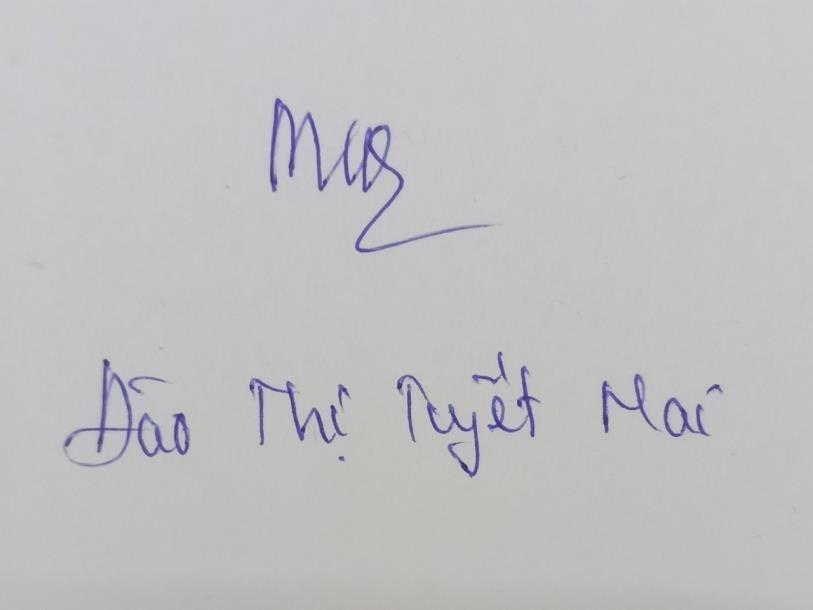 Mai
Đào Thị Tuyết Mai